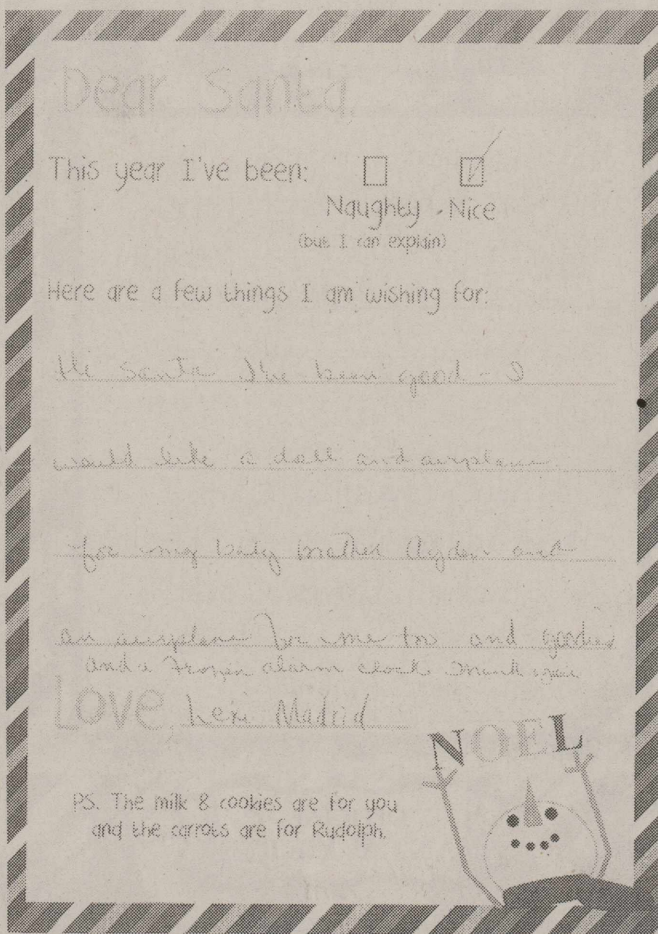 Dear Santa,
This year I've been:
Naughty Nice
(but I can explain)
Here are a few things I am wishing for:
Hi Santa I've been good - I
would like a doll and airplane
for my baby brother Ayden and
an airplane for me too and goodies
and a Frozen alarm clock. Thank you
Love, Lexi Madrid
NOEL
PS. The milk & cookies are for you
and the carrots are for Rudolph.